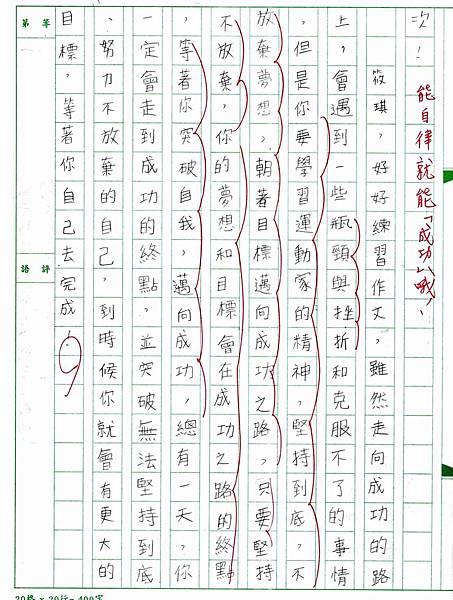 次！
能自律就能「成功」哦！
筱琪，好好練習作文，雖然走向成功的路
上，會遇到一些瓶頸與挫折和克服不了的事情
，但是你要學習運動家的精神，堅持到底，不
放棄夢想，朝著目標邁向成功之路，只要堅持
不放棄，你的夢想和目標會在成功之路的終點
，等著你突破自我，邁向成功，總有一天，你
一定會走到成功的終點，並突破無法堅持到底
、努力不放棄的自己，到時候你就會有更大的
目標，等著你自己去完成。
等第
評語
20格×20行=400字